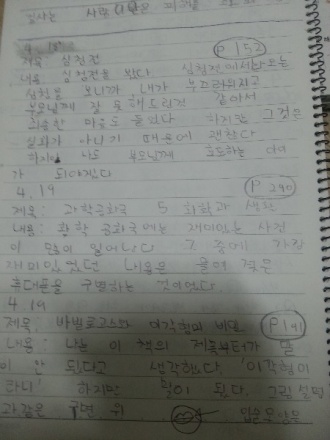 4. 18 p 152
제목 심청전
내용 심청전을 봤다 심청전에서 나오는
심청을 보니까 내가 부끄러워지고
부모님께 잘 못해드린것 같아서
죄송한 마음도 들었다 하지만 그것은
실화가 아니기 때문에 괜찮다
하지만 나도 부모님께 효도하는 아이
가 되어야겠다
4. 19 p 240
제목: 과학공화국 5 화학과 생활
내용: 화학 공화국에는 재미있는 사건
이 많이 일어난다 그 중에 가장
재미있었던 내용은 물에 젖은
휴대폰을 구별하는 것이었다.
4. 19
제목: 바빌로니아와 이각형의 비밀 p 141
내용: 나는 이 책의 제목부터가 말
이 안 된다고 생각했다. '이각형이
라니' 하지만 말이 된다. 그림 설명
과 같은 두면 위 입술모양은